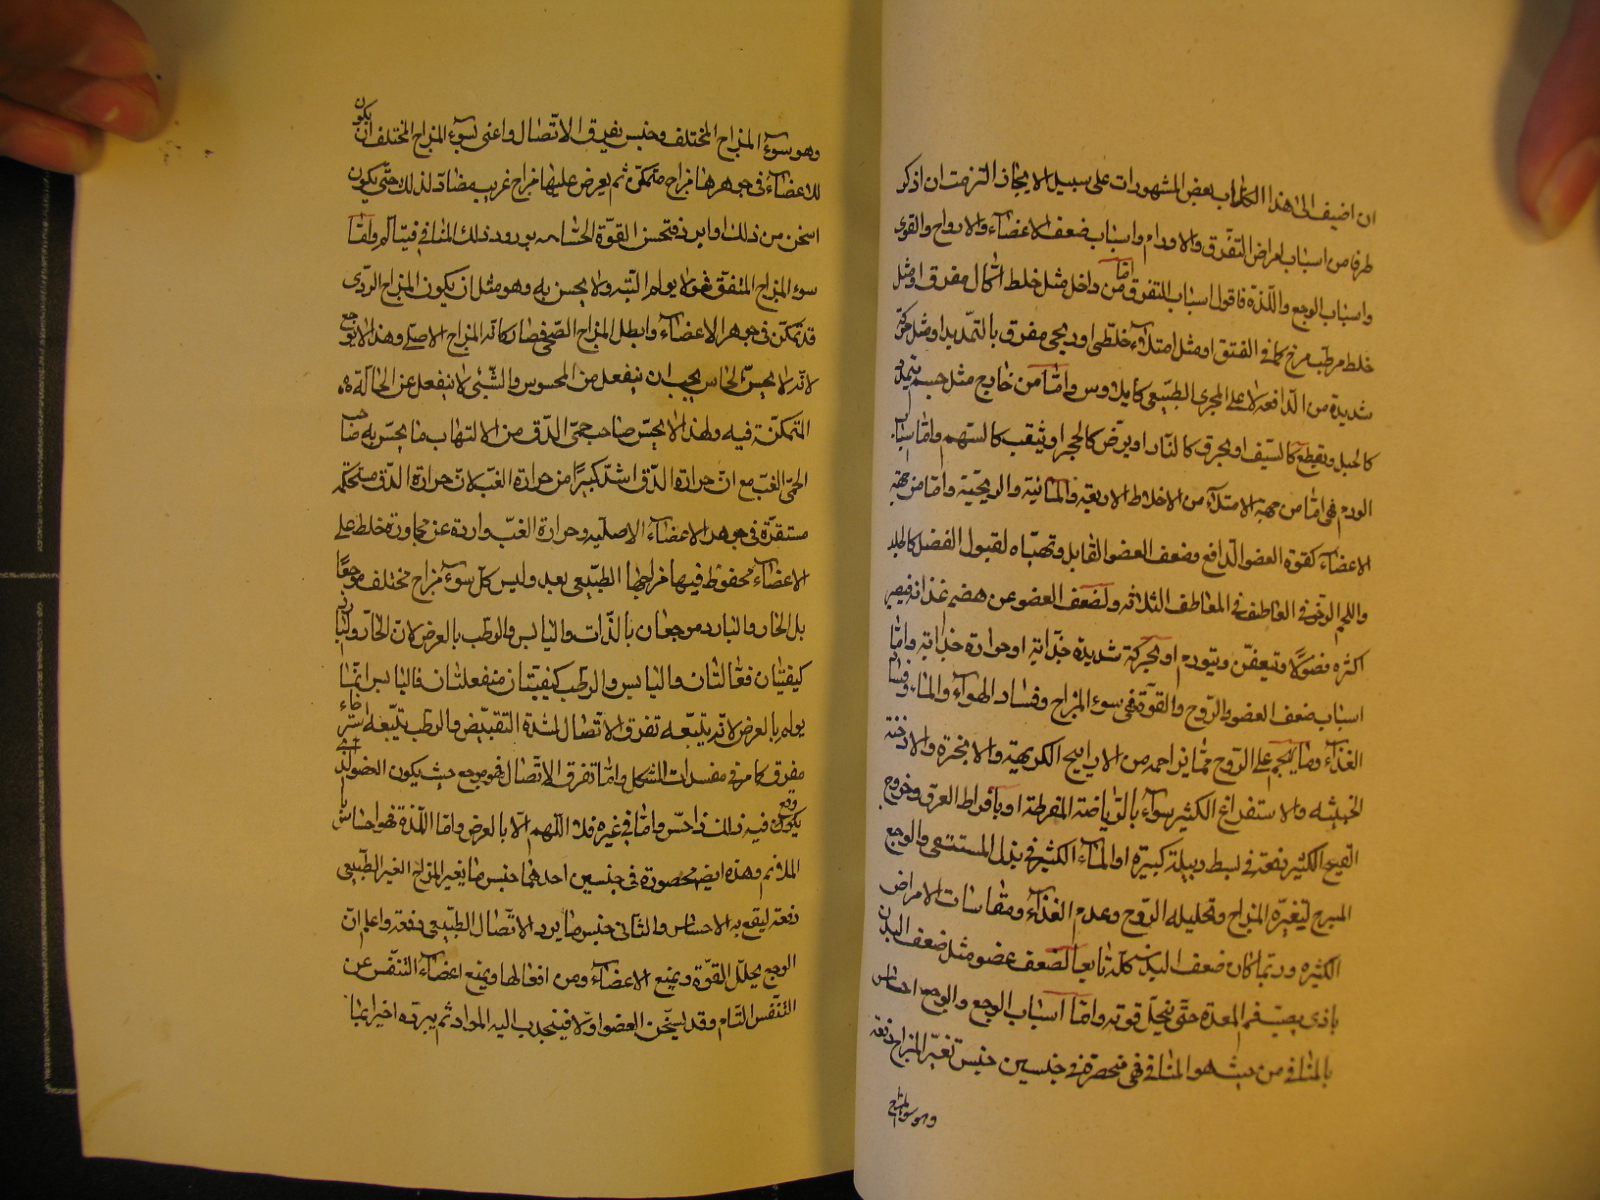 ان اضيف الى هذا الكتاب بعض المشهورات على سبيل الايجاز التزمت ان اذكر
طرفا من اسباب امراض التفرق والاورام واسباب ضعف الاعضاء والارواح والقوى
واسباب الوجع واللذة فاقول اسباب التفرق اما من داخل مثل خلط اكال مفرق او مثل
خلط مرطب مرخ كما في الفتق او مثل امتلاء خلطى او ريحى مفرق بالتمديد او مثل حركة
شديدة من الدافعة لا على المجرى الطبيعى كايلاوس واما من خارج مثل جسم يمدد
كالحبل ويقطع كالسيف او يحرق كالنار او يرض كالحجر او يثقب كالسهم واما اسباب
الورم فهى اما من جهة الامتلاء من الاخلاط الاربعة والمائية والريحية واما من جهة
الاعضاء كقوة العضو الدافع وضعف العضو القابل وتهياه لقبول الفضل كالجلد
واللحم الرخو في المعاطف الثلاثة ولضعف العضو عن هضم غذائه فيصير
اكثره فضولا وتتعفن ويتورم او لحركة شديدة جذابة او حرارة جذابة واما
اسباب ضعف العضو والروح والقوة فهى سوء المزاج وفساد الهواء والماء وفساد
الغذاء وما يهجم على الروح مما يزاحمه من الاراييح الكريهة والابخرة والادخنة
الخبيثه والاستفراغ الكثير سواء بالرياضة المفرطة او بافراط العرق وخروج
القيح الكثير دفعة في لبط دبيلة كبيرة او الماء الكثير في بزل المستسقى والوجع
المبرح لتغيره المزاج وتحليله الروح وعدم الغذاء ومقاسات الامراض
الكثيرة وربما كان ضعف البدن كله تابعا لضعف عضو مثل ضعف البدن
باذى يصيب فم المعدة حتى تنحل قوته واما اسباب الوجع والوجع احساس
بالمنافي من حيث هو المنافي فهى منحصرة في جنسين جنس تغير المزاج دفعة
وهو سوء المزاج
وهو سوء المزاج المختلف وجنس تفرق الاتصال واعنى بسوء المزاج المختلف ان يكون
للاعضاء في جوهرها مزاج متمكن ثم يعرض عليها مزاج غريب مضاد لذلك حتى يكون
اسخن من ذلك او ابرد فتحس القوة الحساسة بورود ذلك المنافي فيتالم واما
سوء المزاج المتفق فهو لا يولم البتة ولا يحس به وهو مثل ان يكون المزاج الردى
قد تمكن في جوهر الاعضاء وابطل المزاج الصحى فصار كانه المزاج الاصلى وهذا لا يوجع
لانه لا يحس لان الحاس يجب ان ينفعل من المحسوس والشئ لا ينفعل عن الحالة
المتمكنة فيه ولهذا لا يحس صاحب حمى الدق من الالتهاب ما يحس به صاحب
الحمى الغب مع ان حرارة الدق اشد كثيرا من حرارة الغب لان حرارة الدق مستحكمة
مستقرة في جوهر الاعضاء الاصلية وحرارة الغب واردة عن مجاورة خلط على
الاعضاء محفوظ فيها مزاجها الطبيعى بعد وليس كل سوء مزاج مختلف موجعا
بل الحار والبارد موجعان بالذات واليابس والرطب بالعرض لان الحار والبارد
كيفيتان فعالتان واليابس والرطب كيفيتان منفعلتان فاليابس انما
يولم بالعرض لانه يتبعه تفرق الاتصال لشدة التقبيض والرطب يتبعه استرخاء
مفرق كما مر في مفسدات الشكل واما تفرق الاتصال فموجع حيث يكون العضو الذى
يكون وقع فيه ذلك ذا حس واما في غيره فلا اللهم الا بالعرض واما اللذة فهو احساس
الملائم وهذه ايضا محصورة في جنسين احدهما جنس ما يغير المزاج الغير الطبيعى
دفعة ليقع به الاحساس والثانى جنس ما يرد الاتصال الطبيعى دفعة واعلم ان
الوجع يحلل القوة ويمنع الاعضاء ومن افعالها ويمنع اعضاء التنفس عن
التنفس التام وقد يسخن العضو اولا فينجذب اليه المواد ثم يبرده اخيرا بما